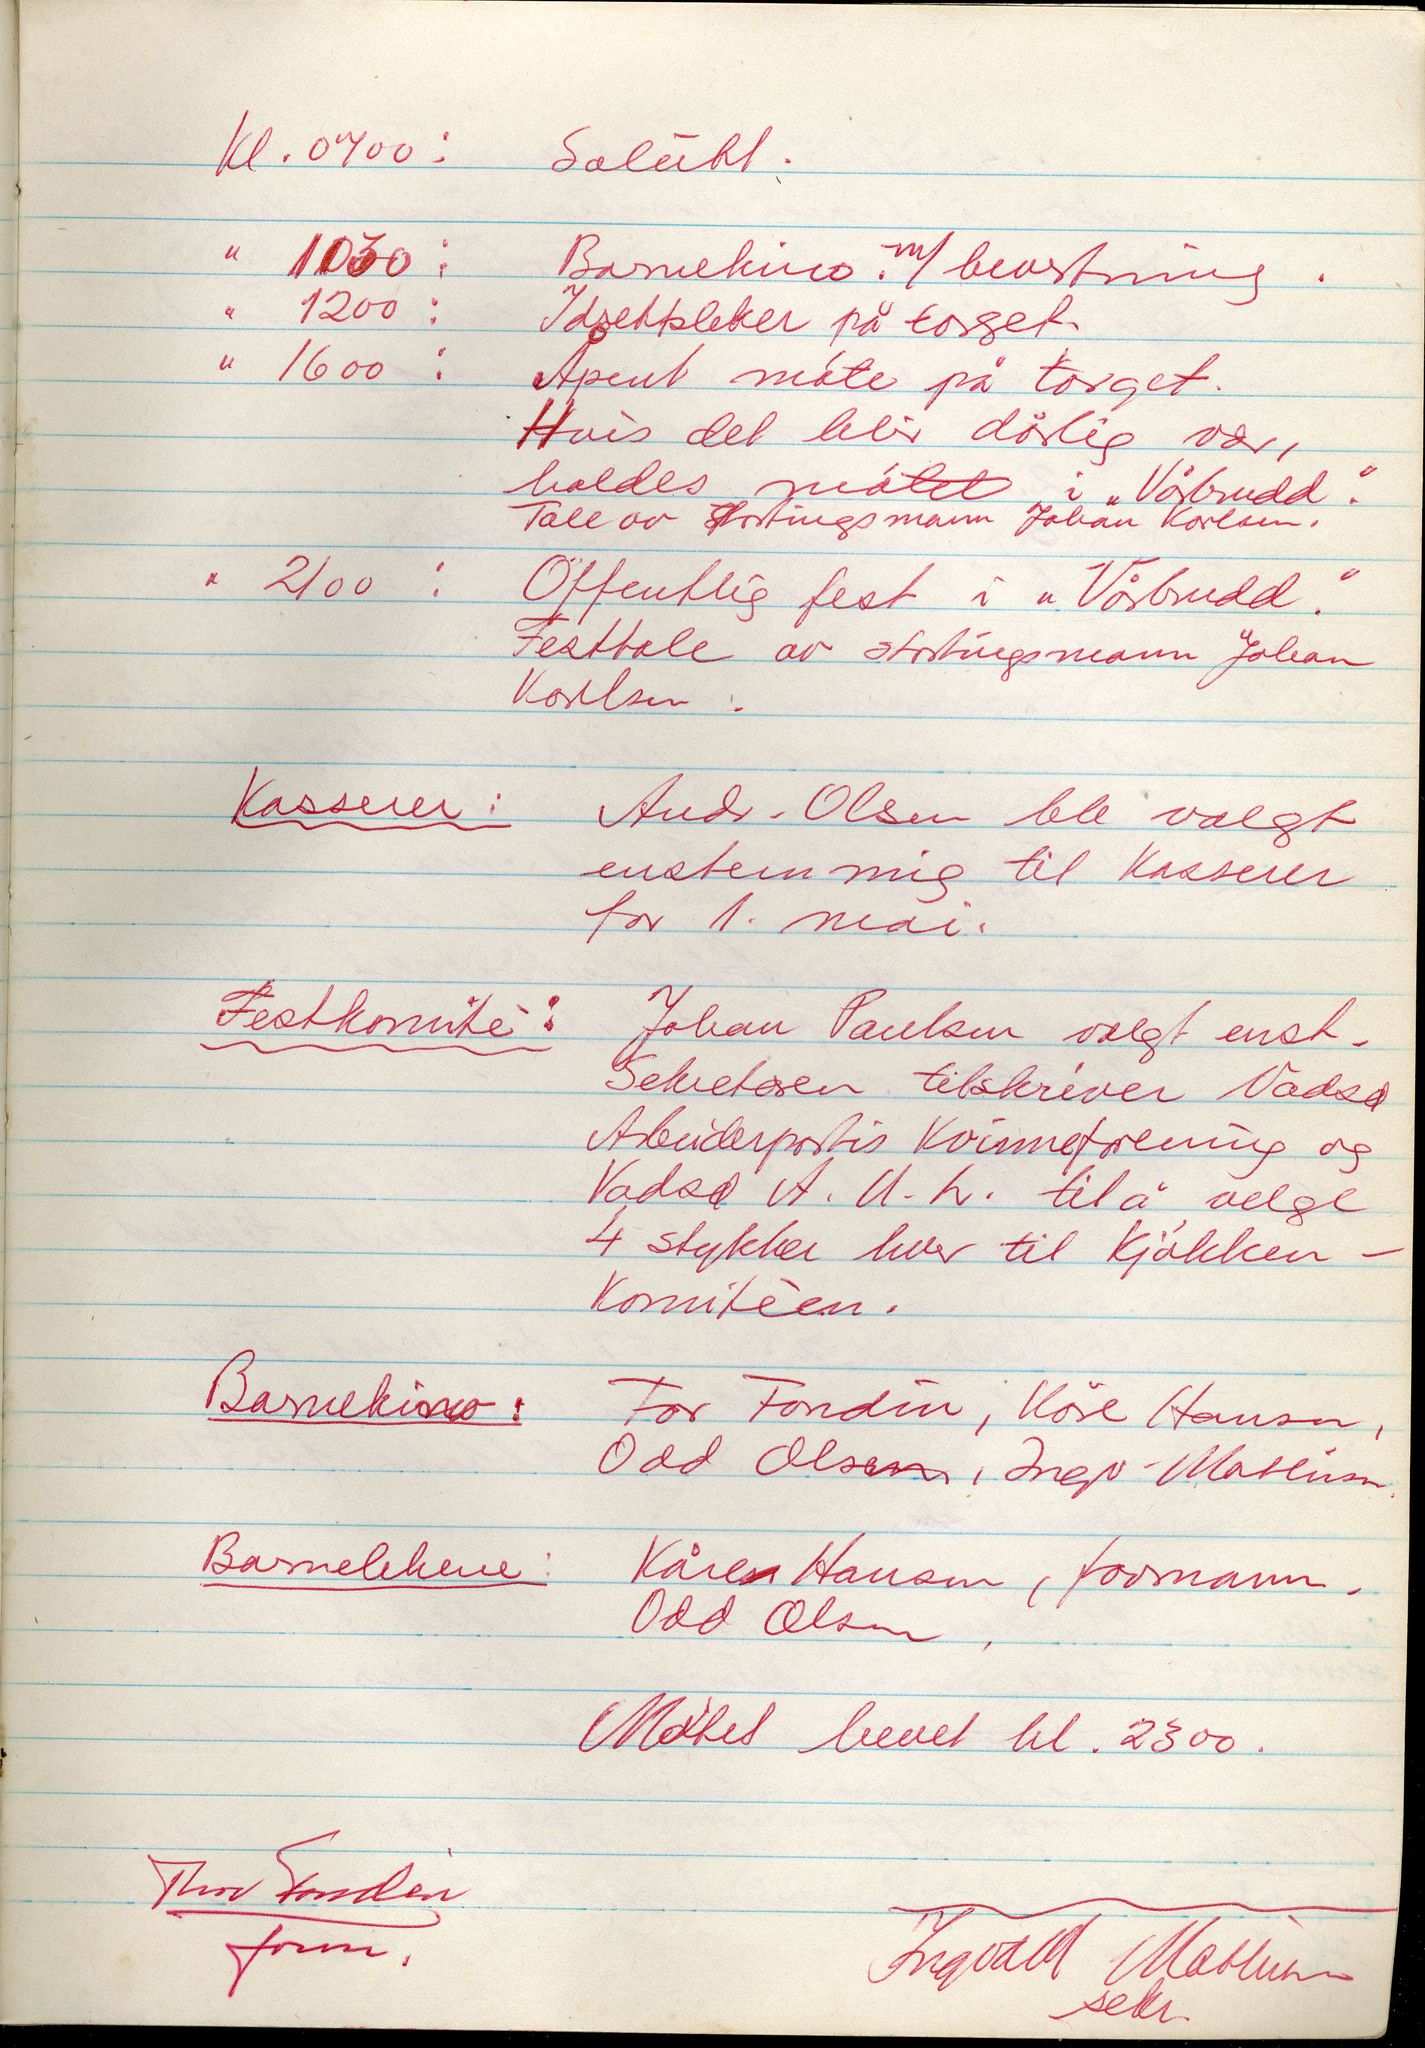 Kl. 0700: Salutt.
" 1030: Barnekino. m/ bevertning.
" 1200: Idrettsleker på torget.
" 1600: Åpent møte på torget.
Hvis det blir dårlig vær,
holdes møtet i "Vårbrudd".
Tale av stortingsmann Johan Karlsen.
" 2100: Offentlig fest i "Vårbrudd".
Festtale av stortingsmann Johan
Karlsen.
Kasserer: Andr. Olsen ble valgt
enstemmig til Kasserer
for 1. mai.
Festkomitè: Johan Paulsen valgt enst.
Sekretæren tilskriver Vadsø
Arbeiderpartis Kvinneforening og
Vadsø A. U. L. til å velge
4 stykker hver til Kjøkken-
Komitèen.
Barnekino: Tor Fondin, Kåre Hansen,
Odd Olsen, Ingv. Mathisen.
Barnelekene: Kåre Hansen, formann.
Odd Olsen,
Møtet hevet kl. 2300.
Thor Fondin
form.
Ingvald Mathisen
sekr.